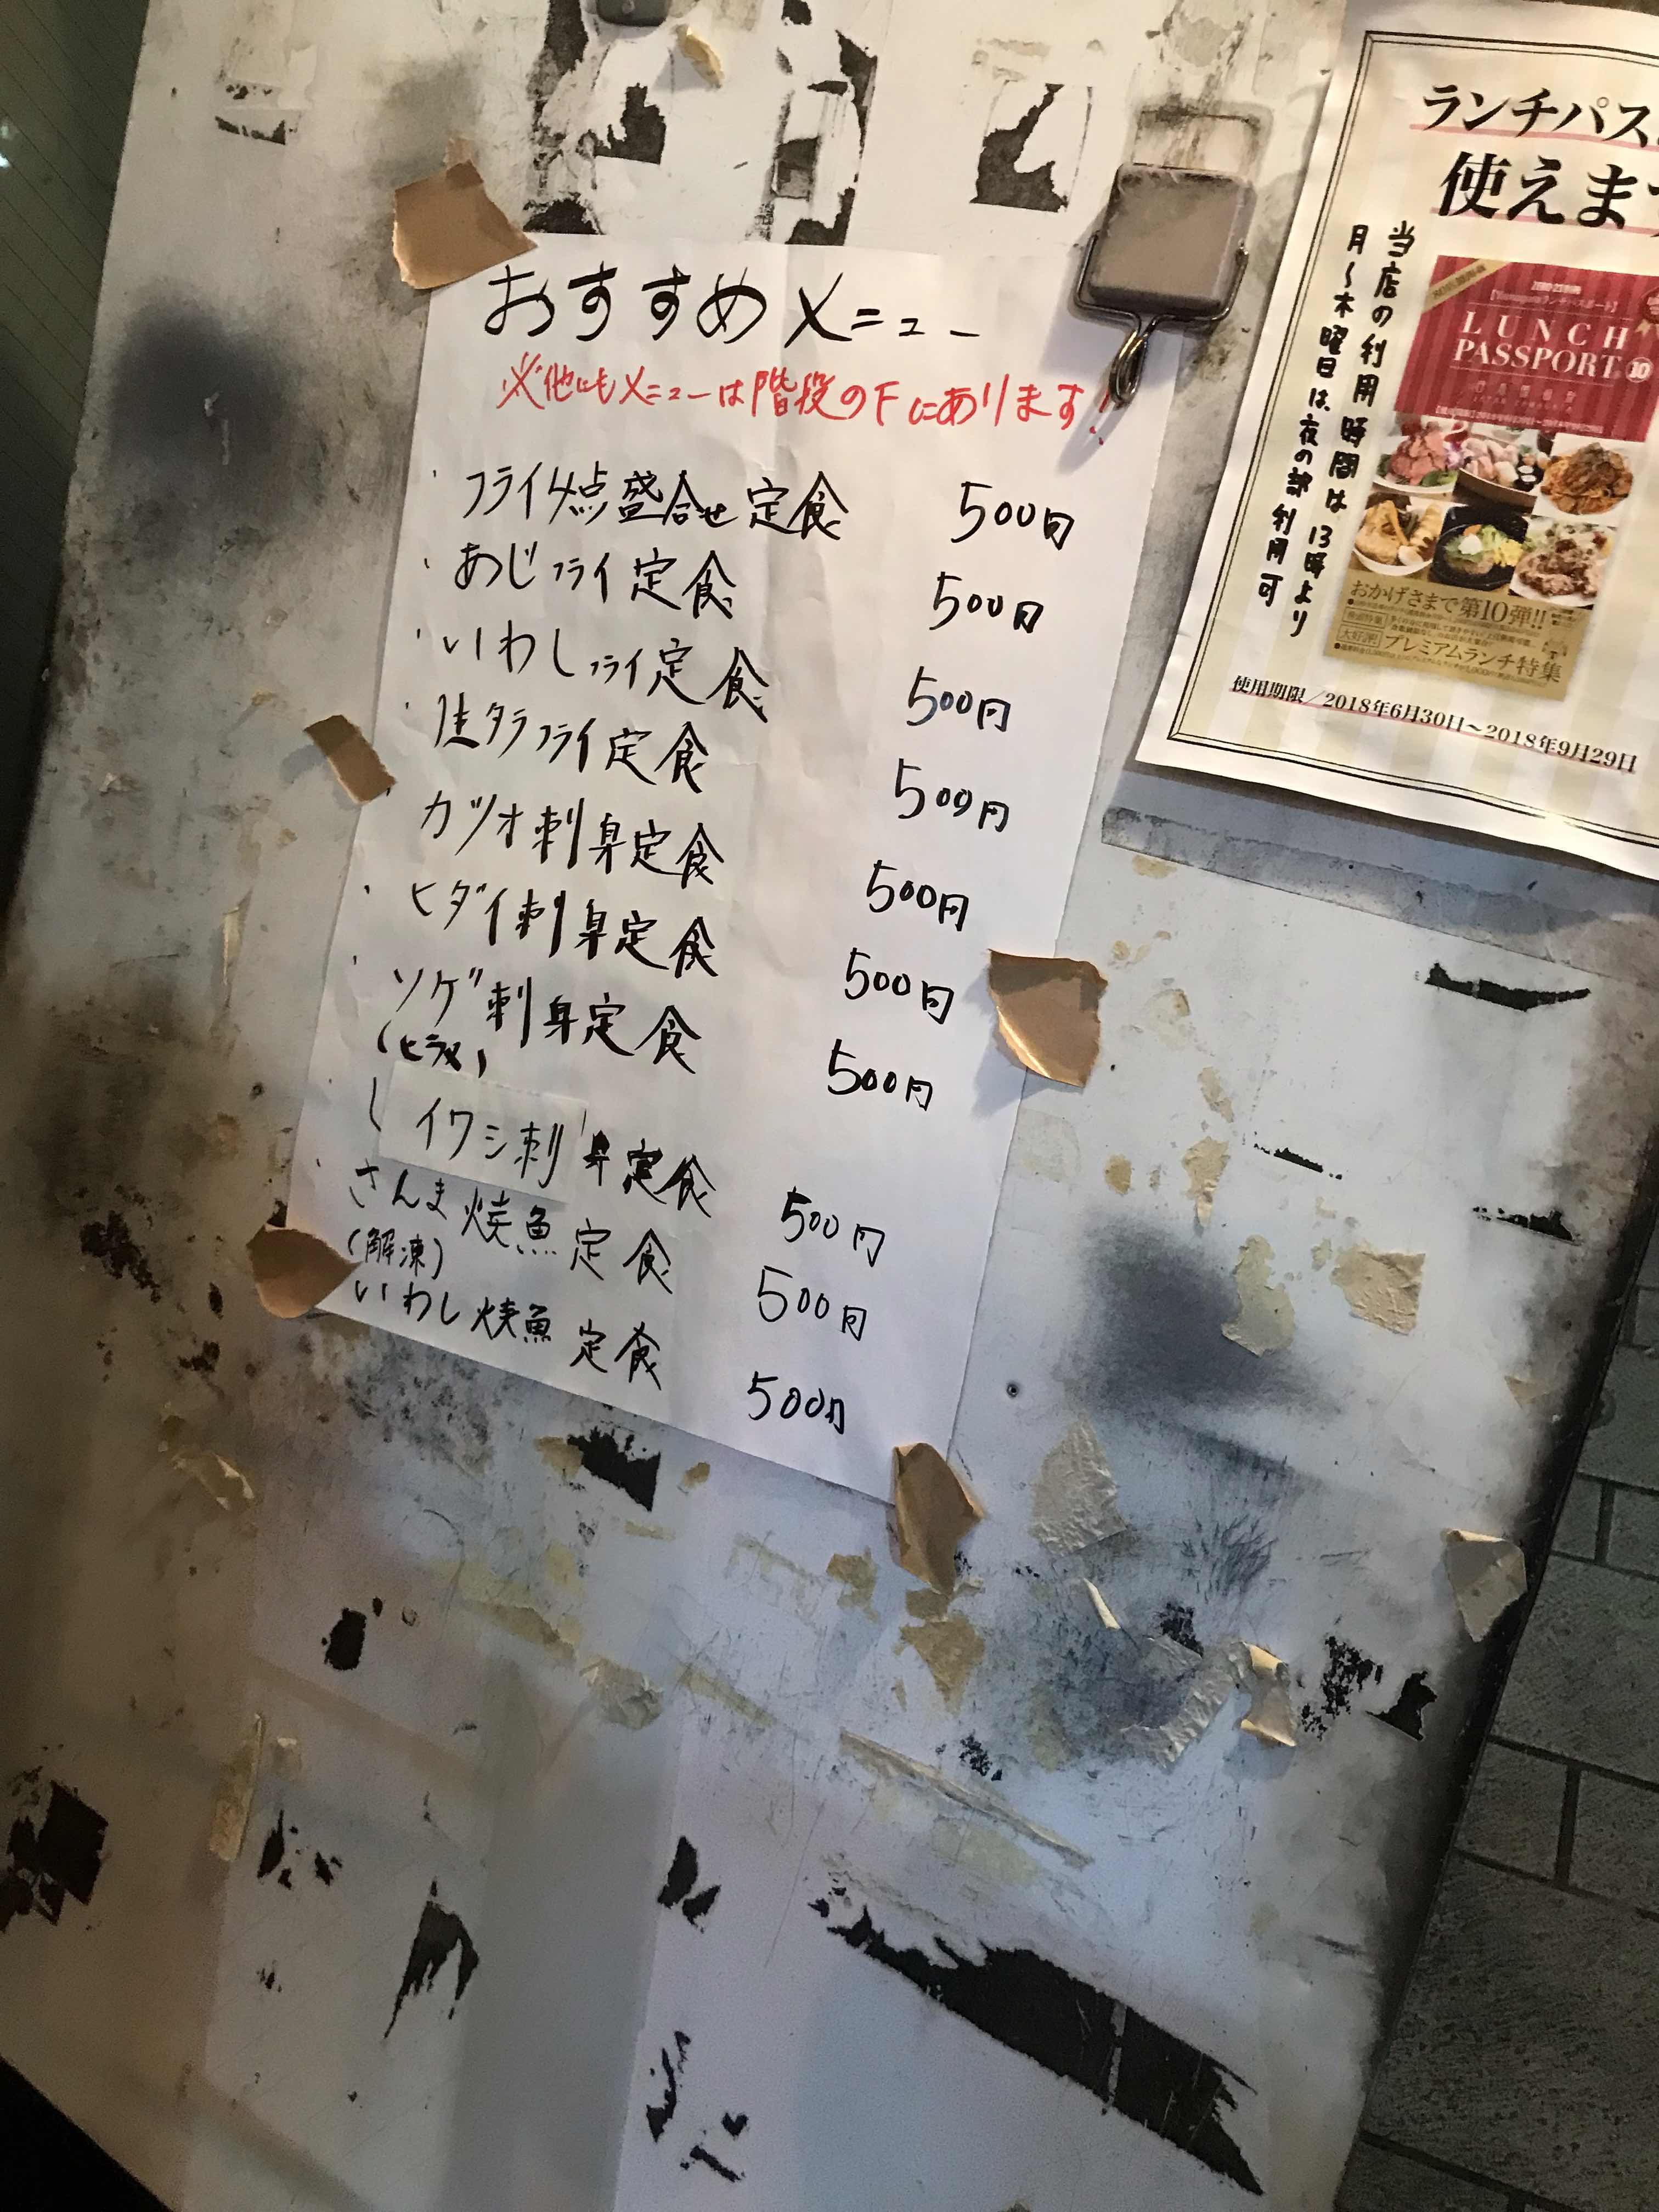 おすすめメニュー
※他にもメニューは階段の下にあります!
・フライ4点盛合せ定食 500円
・あじフライ定食 500円
・いわしフライ定食 500円
・生タラフライ定食 500円
カツオ刺身定食 500円
・ヒダイ刺身定食 500円
・ソゲ刺身定食 500円
(ヒラメ)
イワシ刺身定食 500円
・さんま焼魚定食 500円
(解凍)
いわし焼魚定食 500円
ランチパス
使えます
当店の利用時間は13時より
月~木曜日は、夜の部利用可
LUNCH
PASSPORT 10
おかげさまで第10弾!!
大好評 プレミアムランチ特集
使用期限/2018年6月30日~2018年9月29日